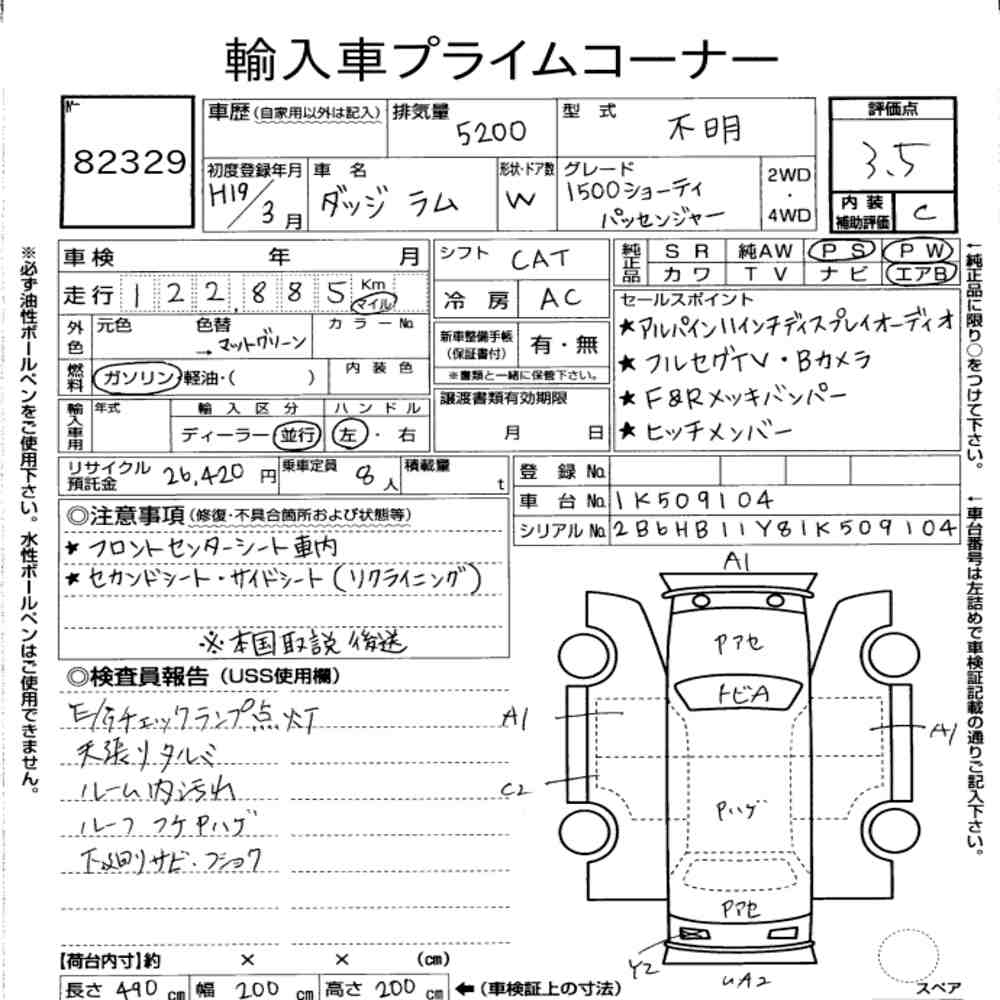 輸入車プライムコーナー
No.
82329
車歴(自家用以外は記入)
排気量
5200
型 式
不明
評価点
3.5
初度登録年月
H19/3月
車 名
ダッジ ラム
形状・ドア数
W
グレード
1500ショーティ
パッセンジャー
2WD
・
4WD
内 装
補助評価
C
車検 年 月
シフト
CAT
純正品
SR 純AW PS PW
カワ TV ナビ エアB
走行 122,885 Km
マイル
冷 房
AC
セールスポイント
★アルパイン11インチディスプレイオーディオ
★フルセグTV・Bカメラ
★F&Rメッキバンパー
★ヒッチメンバー
外色
元色 色替 カラーNo.
→マットグリーン
新車整備手帳
(保証書付)
有・無
※書類と一緒に保管下さい。
燃料
ガソリン・軽油・( )
内 装 色
譲渡書類有効期限
月 日
輸入車用
年式
輸 入 区 分
ディーラー・並行
ハ ン ド ル
左 ・ 右
リサイクル
預託金
26,420円
乗車定員
8人
積載量
t
登 録 No.
車 台 No. 1K509104
シリアル No. 2B6HB11Y81K509104
◎注意事項(修復・不具合箇所および状態等)
★フロントセンターシート車内
★セカンドシート・サイドシート(リクライニング)
※本国取説後送
◎検査員報告(USS使用欄)
E/Gチェックランプ点灯
天張りタルミ
ルーム内汚れ
ルーフ フケPハゲ
下廻りサビ・フショク
A1
Pアセ
トビA
A1
A1
C2
Pハゲ
Pアセ
Y2
UA2
スペア
【荷台内寸】約 × × (cm)
長さ 490 cm 幅 200 cm 高さ 200 cm ←(車検証上の寸法)
※必ず油性ボールペンをご使用下さい。水性ボールペンはご使用できません。
←純正品に限り○をつけて下さい。
←車台番号は左詰めで車検証記載の通りご記入下さい。